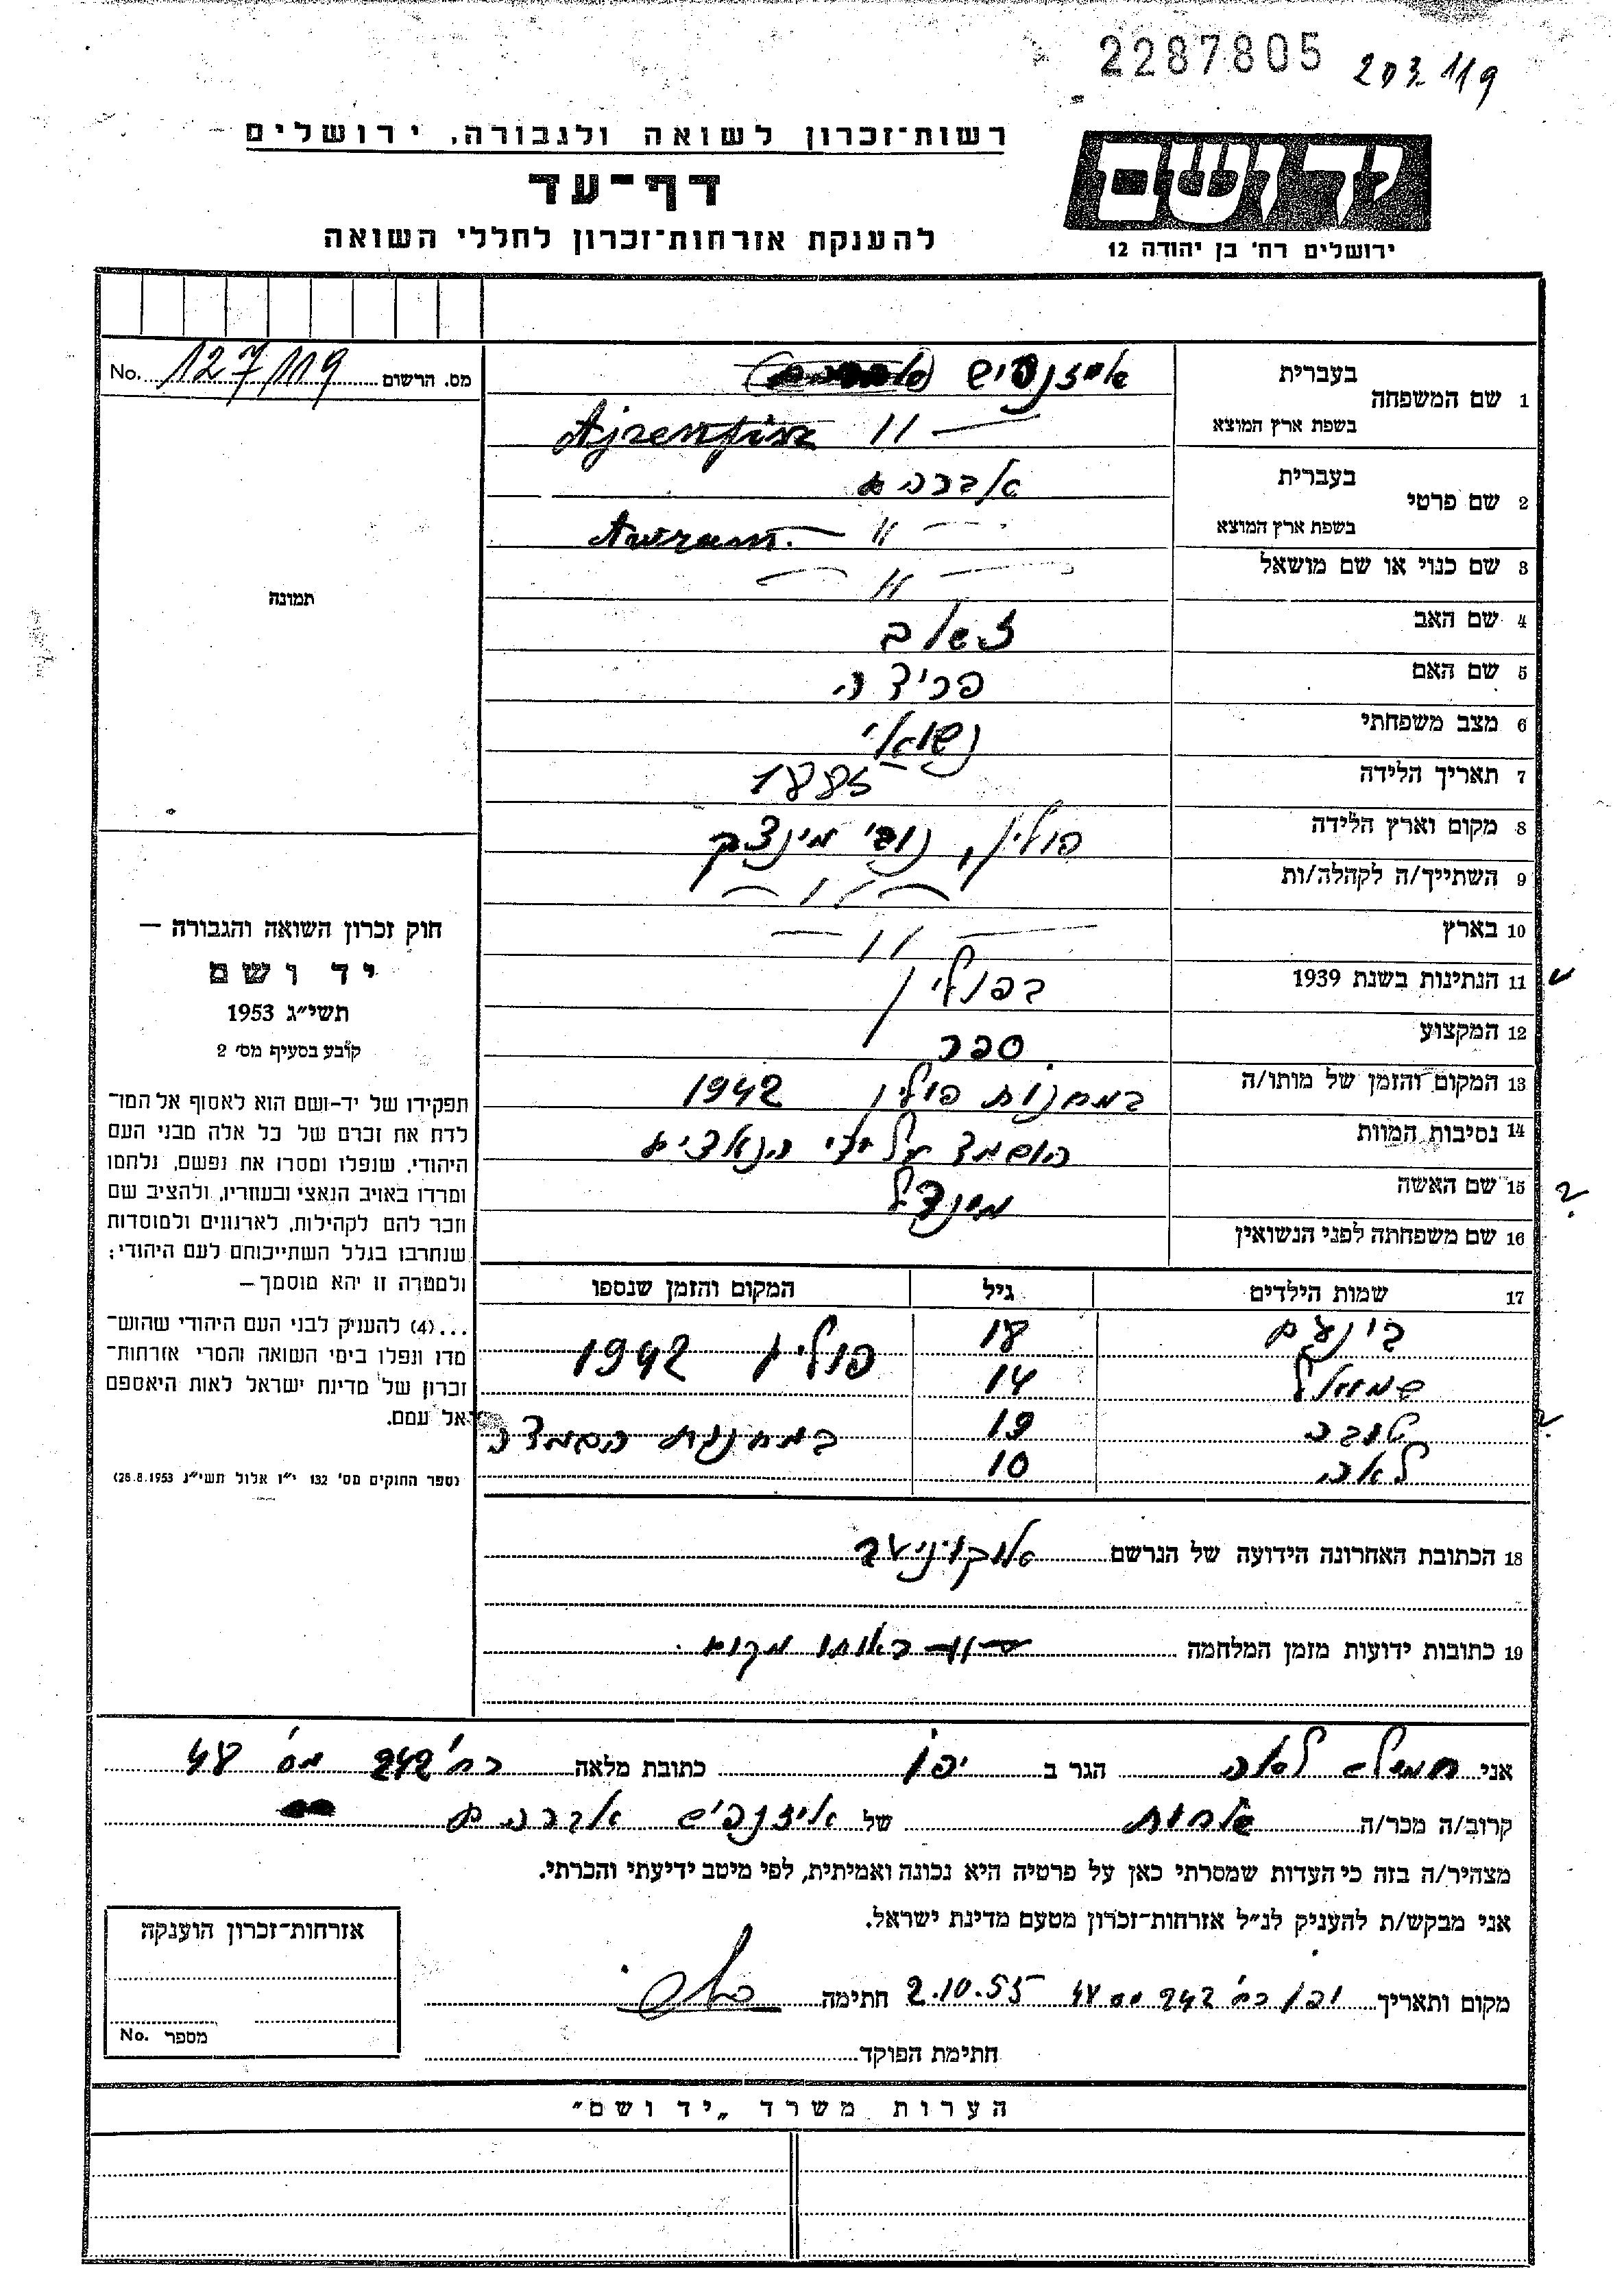 2287805 203.119
רשות־זכרון לשואה ולגבורה, ירושלים
דף־עד
להענקת אזרחות־זכרון לחללי השואה
יד ושם
ירושלים רח' בן יהודה 12
מס. הרשום 127/119 No.
תמונה
1 שם המשפחה בעברית אייזנפיש
בשפת ארץ המוצא — 11 Ajzenfisz
2 שם פרטי בעברית אברהם
בשפת ארץ המוצא — 11 — Awram.
3 שם כנוי או שם מושאל — 11 —
4 שם האב זאלב
5 שם האם פרידה
6 מצב משפחתי נשואי
7 תאריך הלידה 1885
8 מקום וארץ הלידה פולין, נובי מינצק
9 השתייך/ה לקהלה/ות — 11 —
10 בארץ — 11 —
11 הנתינות בשנת 1939 בפולין
12 המקצוע ספר
13 המקום והזמן של מותו/ה במחנות פולין 1942
14 נסיבות המוות הושמד על ידי הנאצים
15 שם האשה מינדל
16 שם משפחתה לפני הנשואין
17 שמות הילדים גיל המקום והזמן שנספו
בינעם 18 פולין 1942
שמואל 14
טובה 19 במחנות השמדה
לאה 10
18 הכתובת האחרונה הידועה של הנרשם
19 כתובות ידועות מזמן המלחמה באותו מקום.
חוק זכרון השואה והגבורה —
יד ושם
תשי״ג 1953
קובע בסעיף מס' 2
תפקידו של יד-ושם הוא לאסוף אל המו־
לדת את זכרם של כל אלה מבני העם
היהודי, שנפלו ומסרו את נפשם, נלחמו
ומרדו באויב הנאצי ובעוזריו, ולהציב שם
וזכר להם לקהילות, לארגונים ולמוסדות
שנחרבו בגלל השתייכותם לעם היהודי;
ולמטרה זו יהא מוסמך —
...(4) להעניק לבני העם היהודי שהוש־
מדו ונפלו בימי השואה והמרי אזרחות־
זכרון של מדינת ישראל לאות היאספם
אל עמם.
(ספר החוקים מס' 132 י״ז אלול תשי״ג 28.8.1953)
אני לאה הגר ב יפו כתובת מלאה רח' 242 מס' 48
קרוב/ה מכר/ה אחות של אייזנפיש אברהם
מצהיר/ה בזה כי העדות שמסרתי כאן על פרטיה היא נכונה ואמיתית, לפי מיטב ידיעתי והכרתי.
אני מבקש/ת להעניק לנ״ל אזרחות־זכרון מטעם מדינת ישראל.
מקום ותאריך יפו רח' 242 מס 48 2.10.55 חתימה
חתימת הפוקד
אזרחות־זכרון הוענקה
מספר No.
הערות משרד „יד ושם״